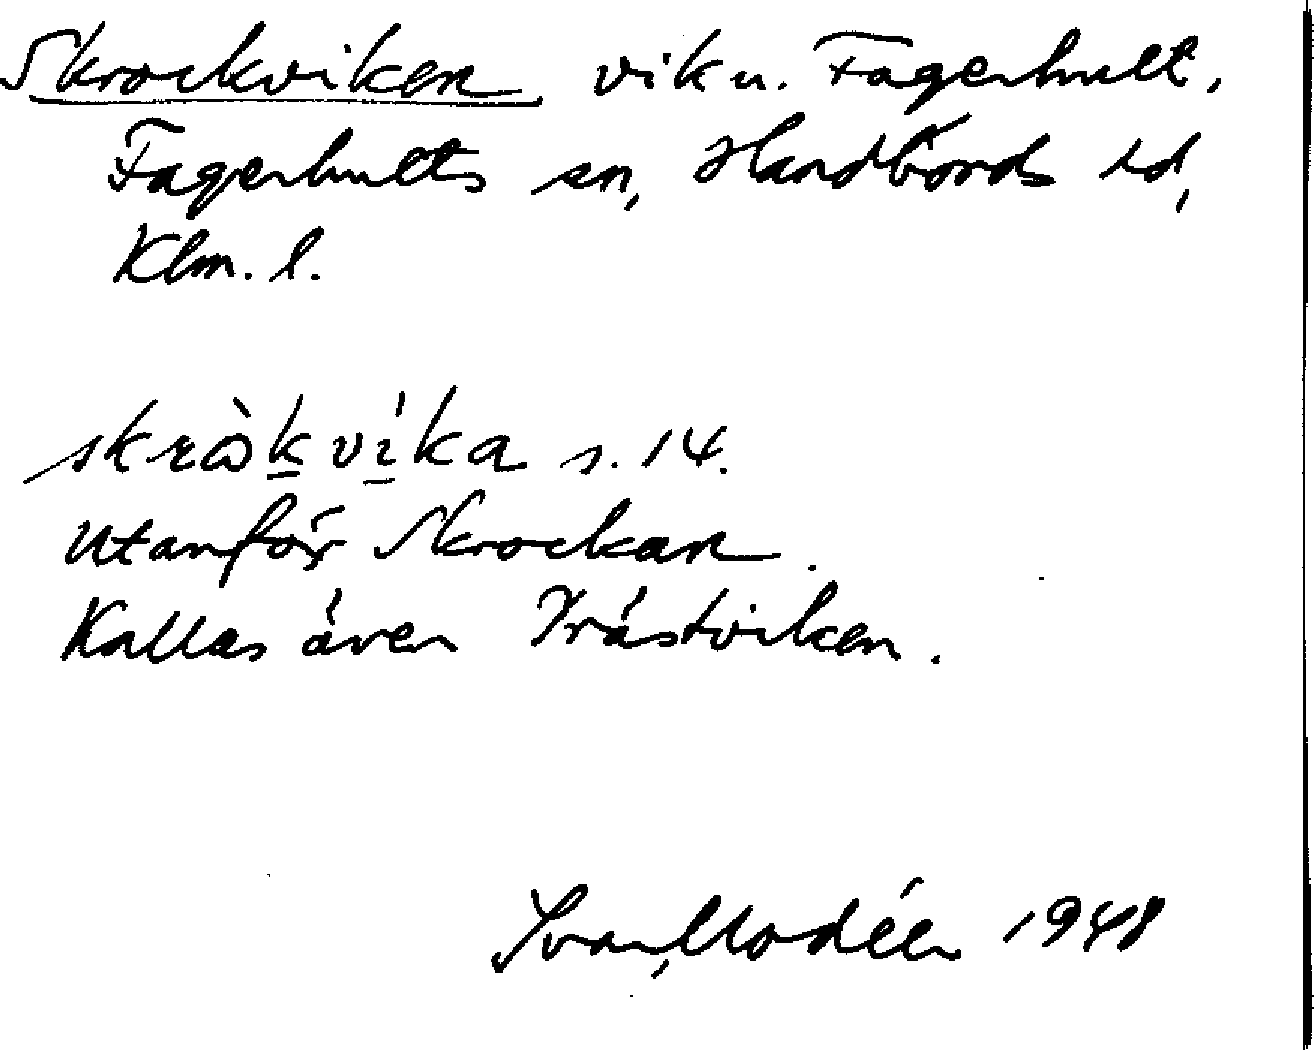 Skrockviken vik u. Fagerhult,
Fagerhults sn, Handbörds hd,
Klm. l.
skrὼkvíka s. 14.
Utanför Skrockan.
Kallas även Trástviken.
Ivar Modéer 1948